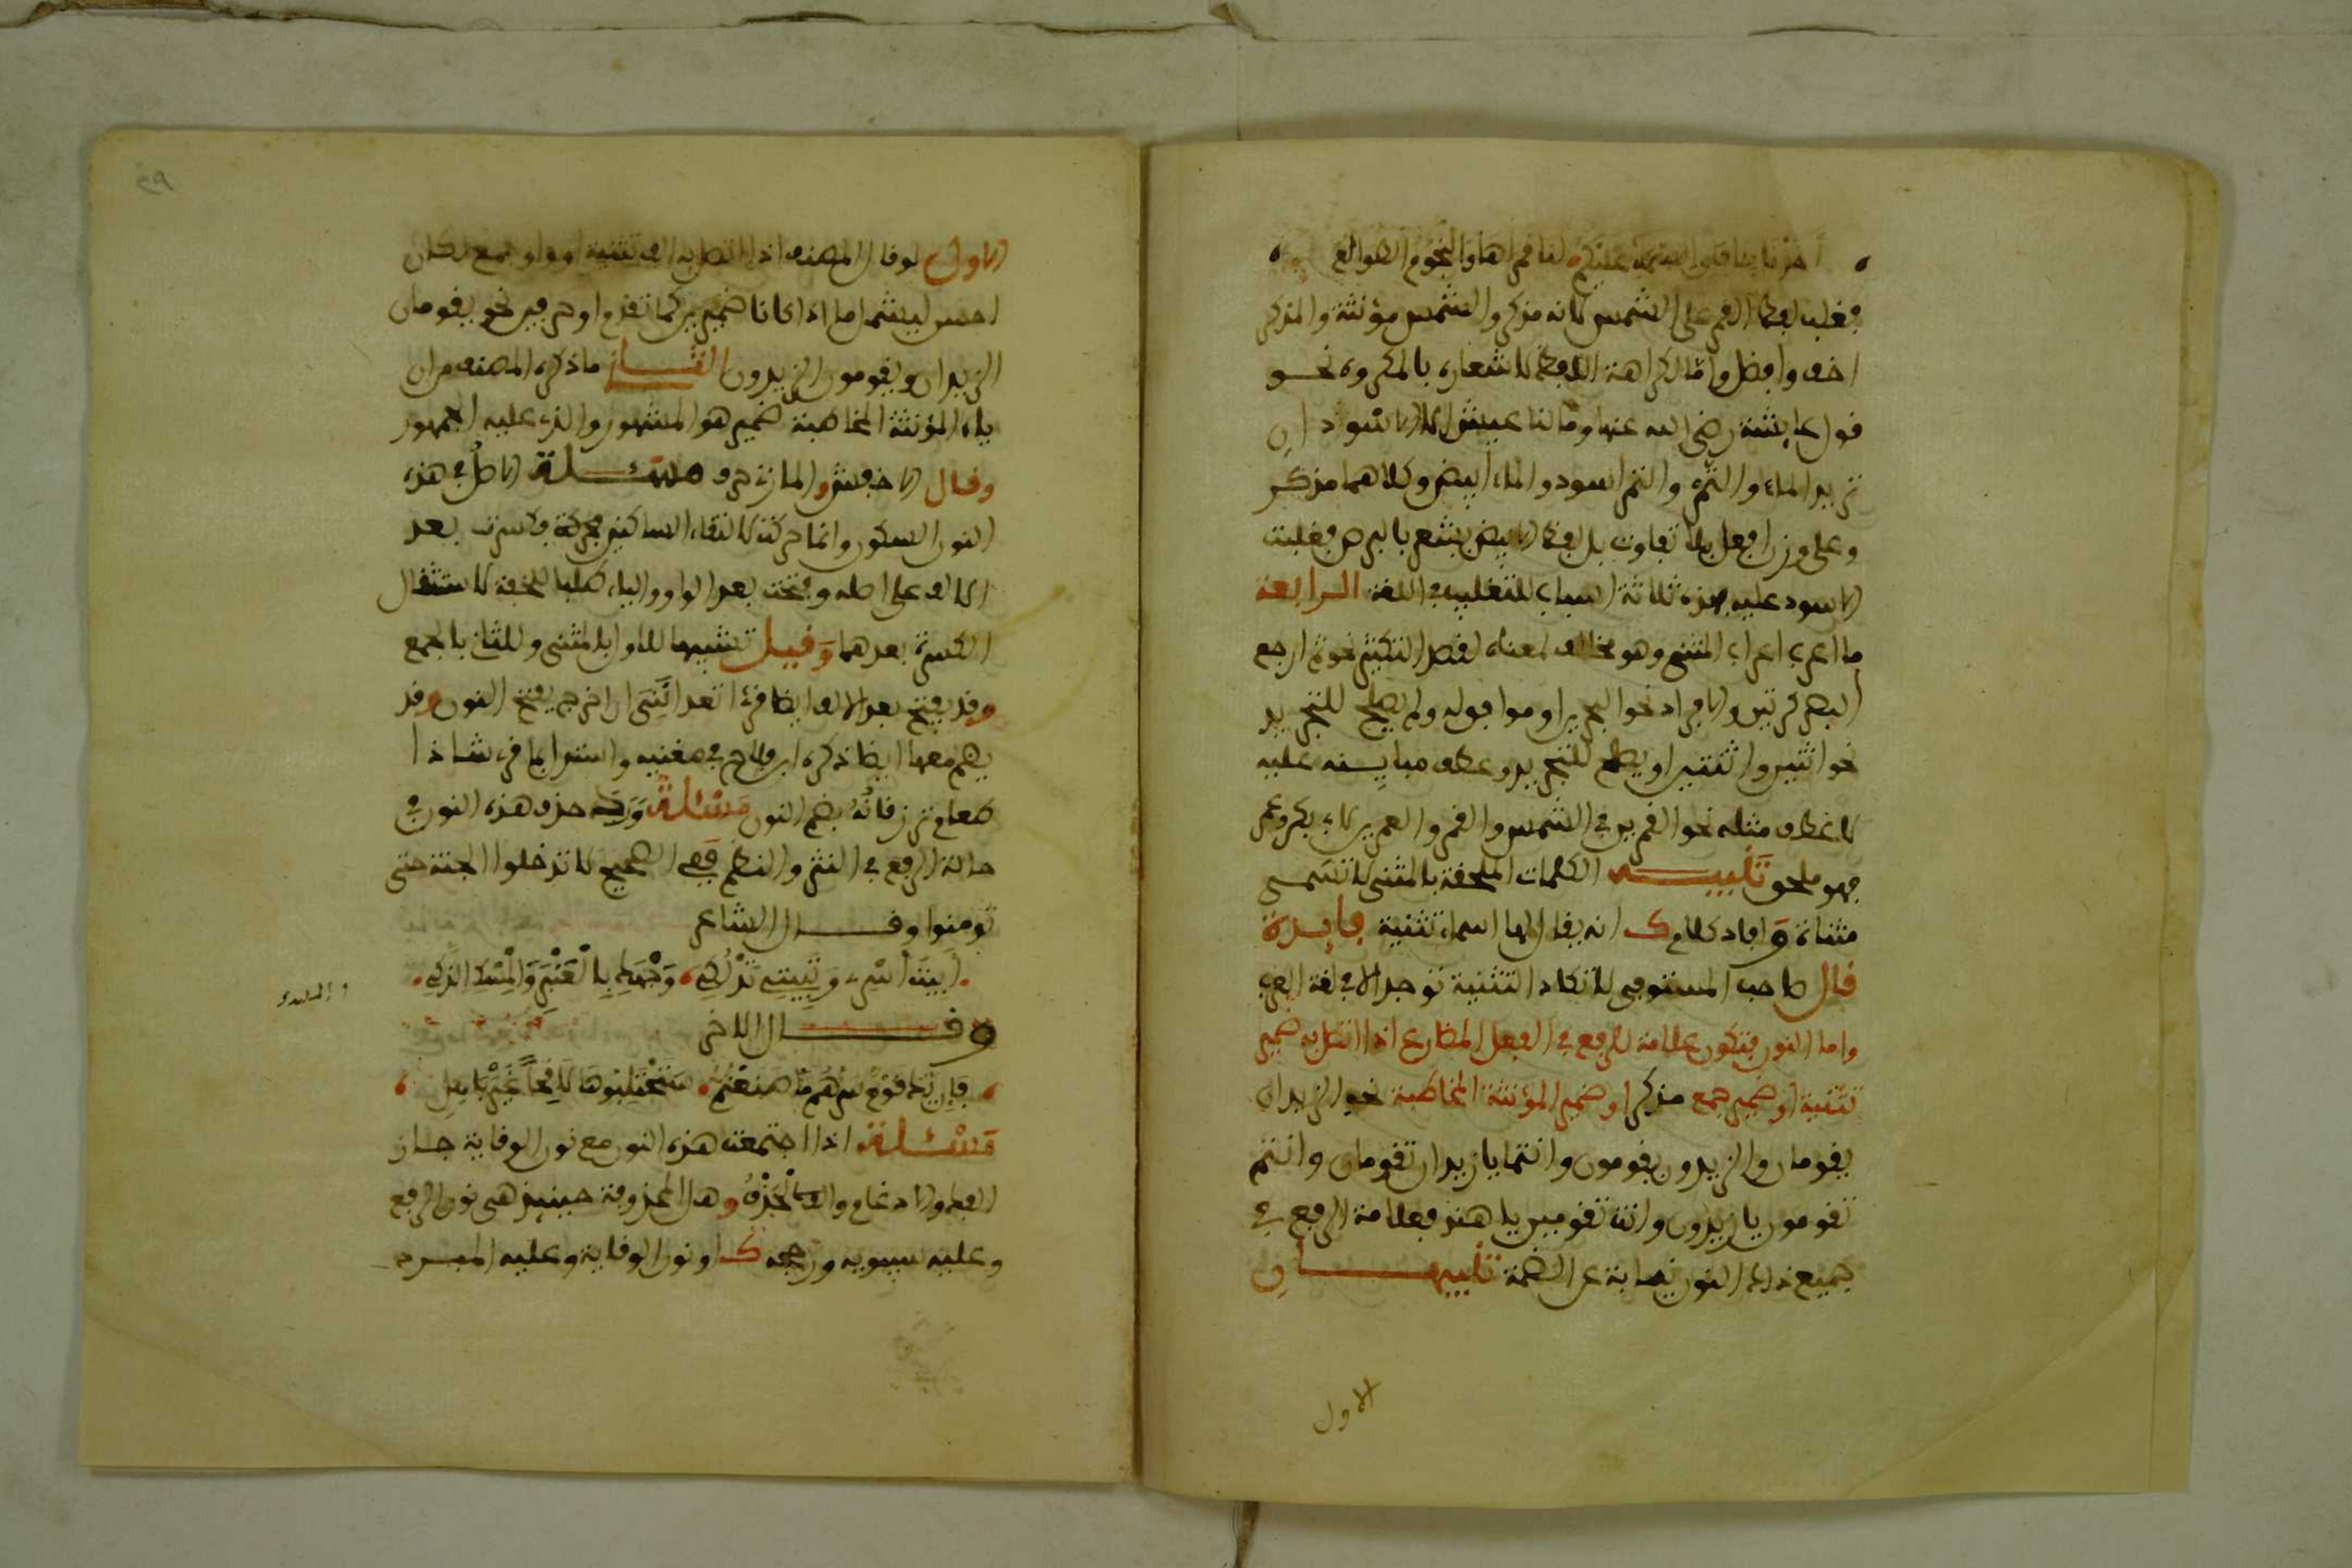 أخذنا بآفاق السماء عليكم لنا قمراها والنجوم الطوالع
فغلب لفظ القمر على الشمس لانه مذكر والشمس مؤنثة والمذكر
اخف وافضل واما لكراهة اللفظ لاشعاره بالمكروه نحو
قول عايشة رضي الله عنها وما لنا عيش الا الاسودان
تريد الماء والتمر والتمر اسود والماء ابيض وكلاهما مذكر
وعلى وزن افعل بلا تفاوت بل لفظ الابيض يشعر بالبرص فغلبت
الاسود عليه فهذه ثلاثة اسباب للتغليب في اللغة الرابعة
ما اعرب اعراب المثنى وهو مخالف لمعناه لقصد التكثير نحو ثم ارجع
البصر كرتين والافراد نحو البحرين او موافق له ولم يصلح للتجريد
نحو اثنين واثنتين او يصلح للتجريد وعطف مباينه عليه
لا عطف مثله نحو القمرين في الشمس والقمر والعمرين لابي بكر وعمر
فهو ملحق تنبيه الكلمات الملحقة بالمثنى لا تسمى
مثناة وافاد كلام ك انه يقال لها اسماء تثنية فايدة
قال صاحب المستوفى لا تكاد التثنية توجد الا في لغة العرب
واما النون فتكون علامة للرفع في الفعل المضارع اذا اتصل به ضمير
تثنية او ضمير جمع مذكر او ضمير المؤنثة المخاطبة نحو الزيدان
يقومان والزيدون يقومون وانتما يا زيدان تقومان وانتم
تقومون يا زيدون وانت تقومين يا هند فعلامة الرفع في
جميع ذلك النون نيابة عن الضمة تنبيهان
الاول
٣٩
الاول لو قال المصنف اذا اتصل به الف تثنية او واو جمع لكان
احسن ليشمل ما اذا كانا ضميرين كما تقدم او حرفين نحو يقومان
الزيدان ويقومون الزيدون الثاني ما ذكره المصنف من ان
ياء المؤنثة المخاطبة ضمير هو المشهور والذي عليه الجمهور
وقال الاخفش والمازني حرف مسئلة الاصل في هذه
النون السكون وانما حركت لالتقاء الساكنين فكسرت بعد
الالف على اصله وفتحت بعد الواو والياء طلبا للخفة لاستثقال
الكسرة بعدهما وقيل تشبيها للاول بالمثنى وللثاني بالجمع
وقد يفتح بعد الالف ايضا قرئ اتعدانني ان اخرج بفتح النون وقد
يضم معها ايضا ذكره ابن فلاح في مغنيه واستدل بما قرئ شاذا
طعام ترزقانه بضم النون مسئلة ورد حذف هذه النون في
حالة الرفع في النثر والنظم ففي الصحيح لا تدخلوا الجنة حتى
تومنوا وقال الشاعر
أبيت أسري وتبيتي تدلكي وجهك بالعنبر والمسك الذكي
وقال الاخر
فإن يك قوم سرهم ما صنعتم ستحتلبوها لاقحا غير باهل
مسئلة اذا اجتمعت هذه النون مع نون الوقاية جاز
الفك والادغام والحذف وهل المحذوفة حينئذ هي نون الرفع
وعليه سيبويه ورجحه ك او نون الوقاية وعليه المبرد